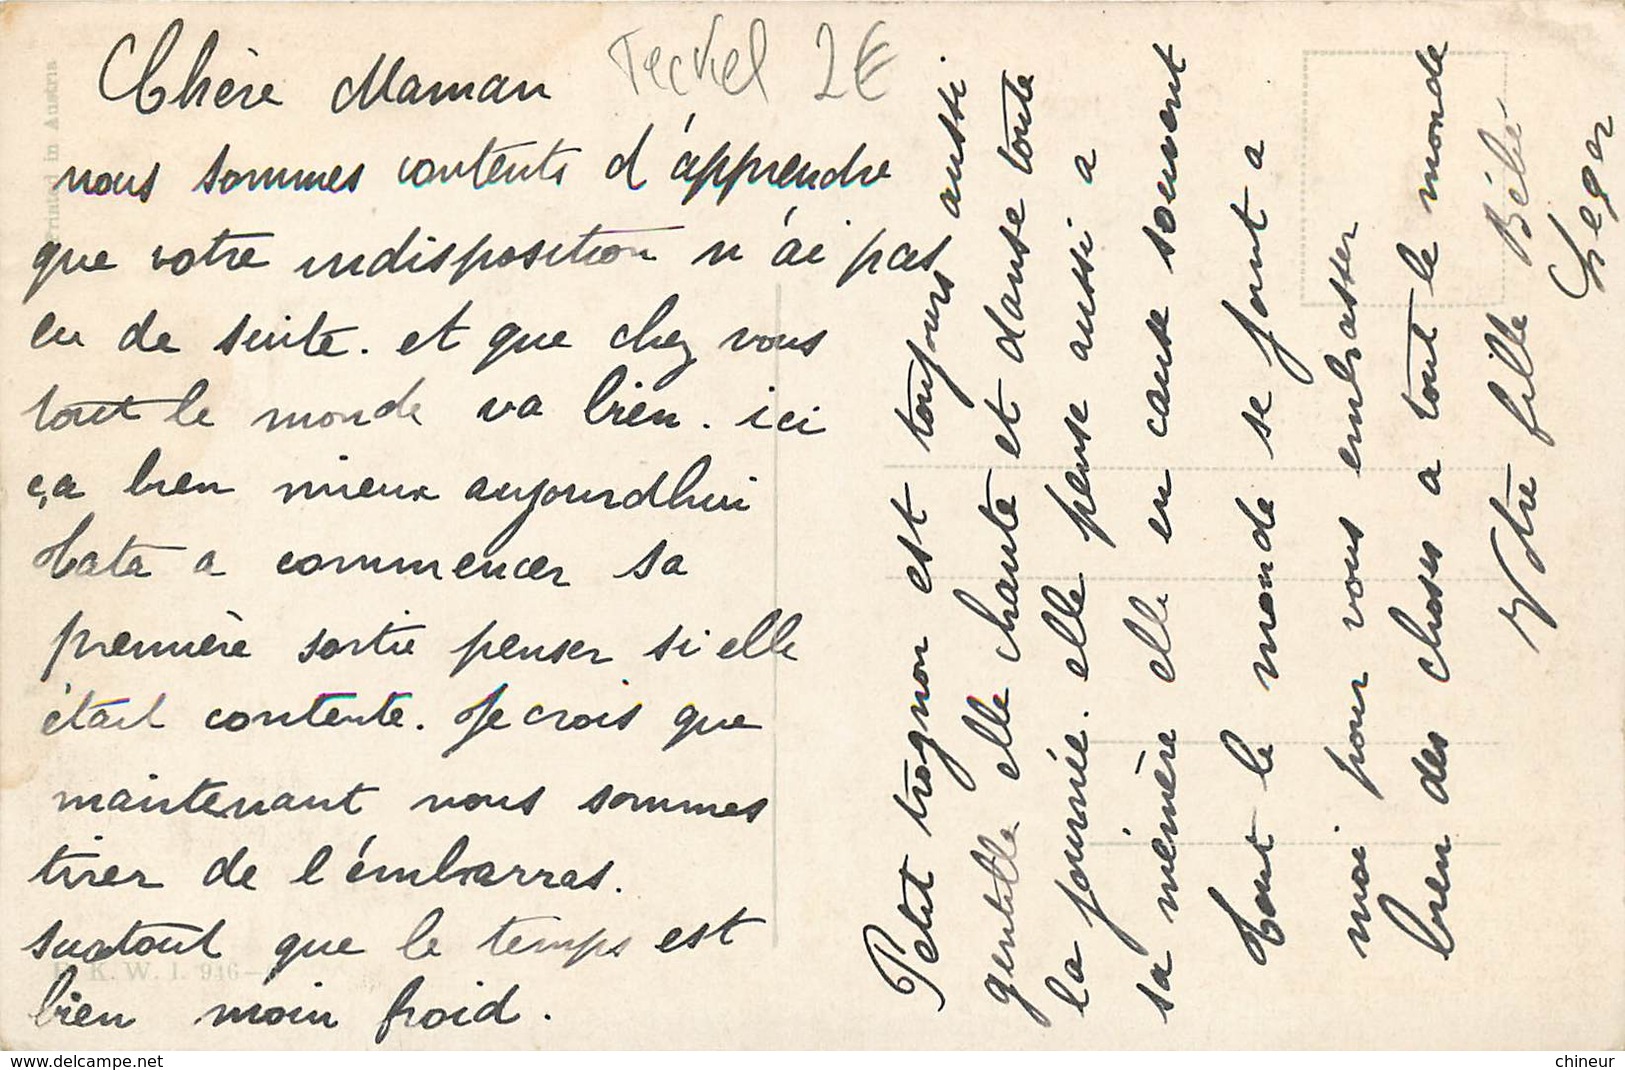 Chère Maman
Teckel 2€
nous sommes contents d'apprendre
que votre indisposition n'ai pas
eu de suite. et que chez vous
tout le monde va bien. ici
ça bien mieux aujourdhui
tata a commencer sa
première sortie penser si elle
était contente. Je crois que
maintenant nous sommes
tirer de l'émbarras.
surtout que le temps est
bien moin froid.
Petit trognon est toujours aussi
gentille elle chante et danse toute
la journée. elle pense aussi a
sa mémère elle en cause souvent
tout le monde se joint a
moi pour vous embrasser
bien des choses a tout le monde
Votre fille Bébé
Printed in Austria
K. W. I. 916-
www.delcampe.net
chineur